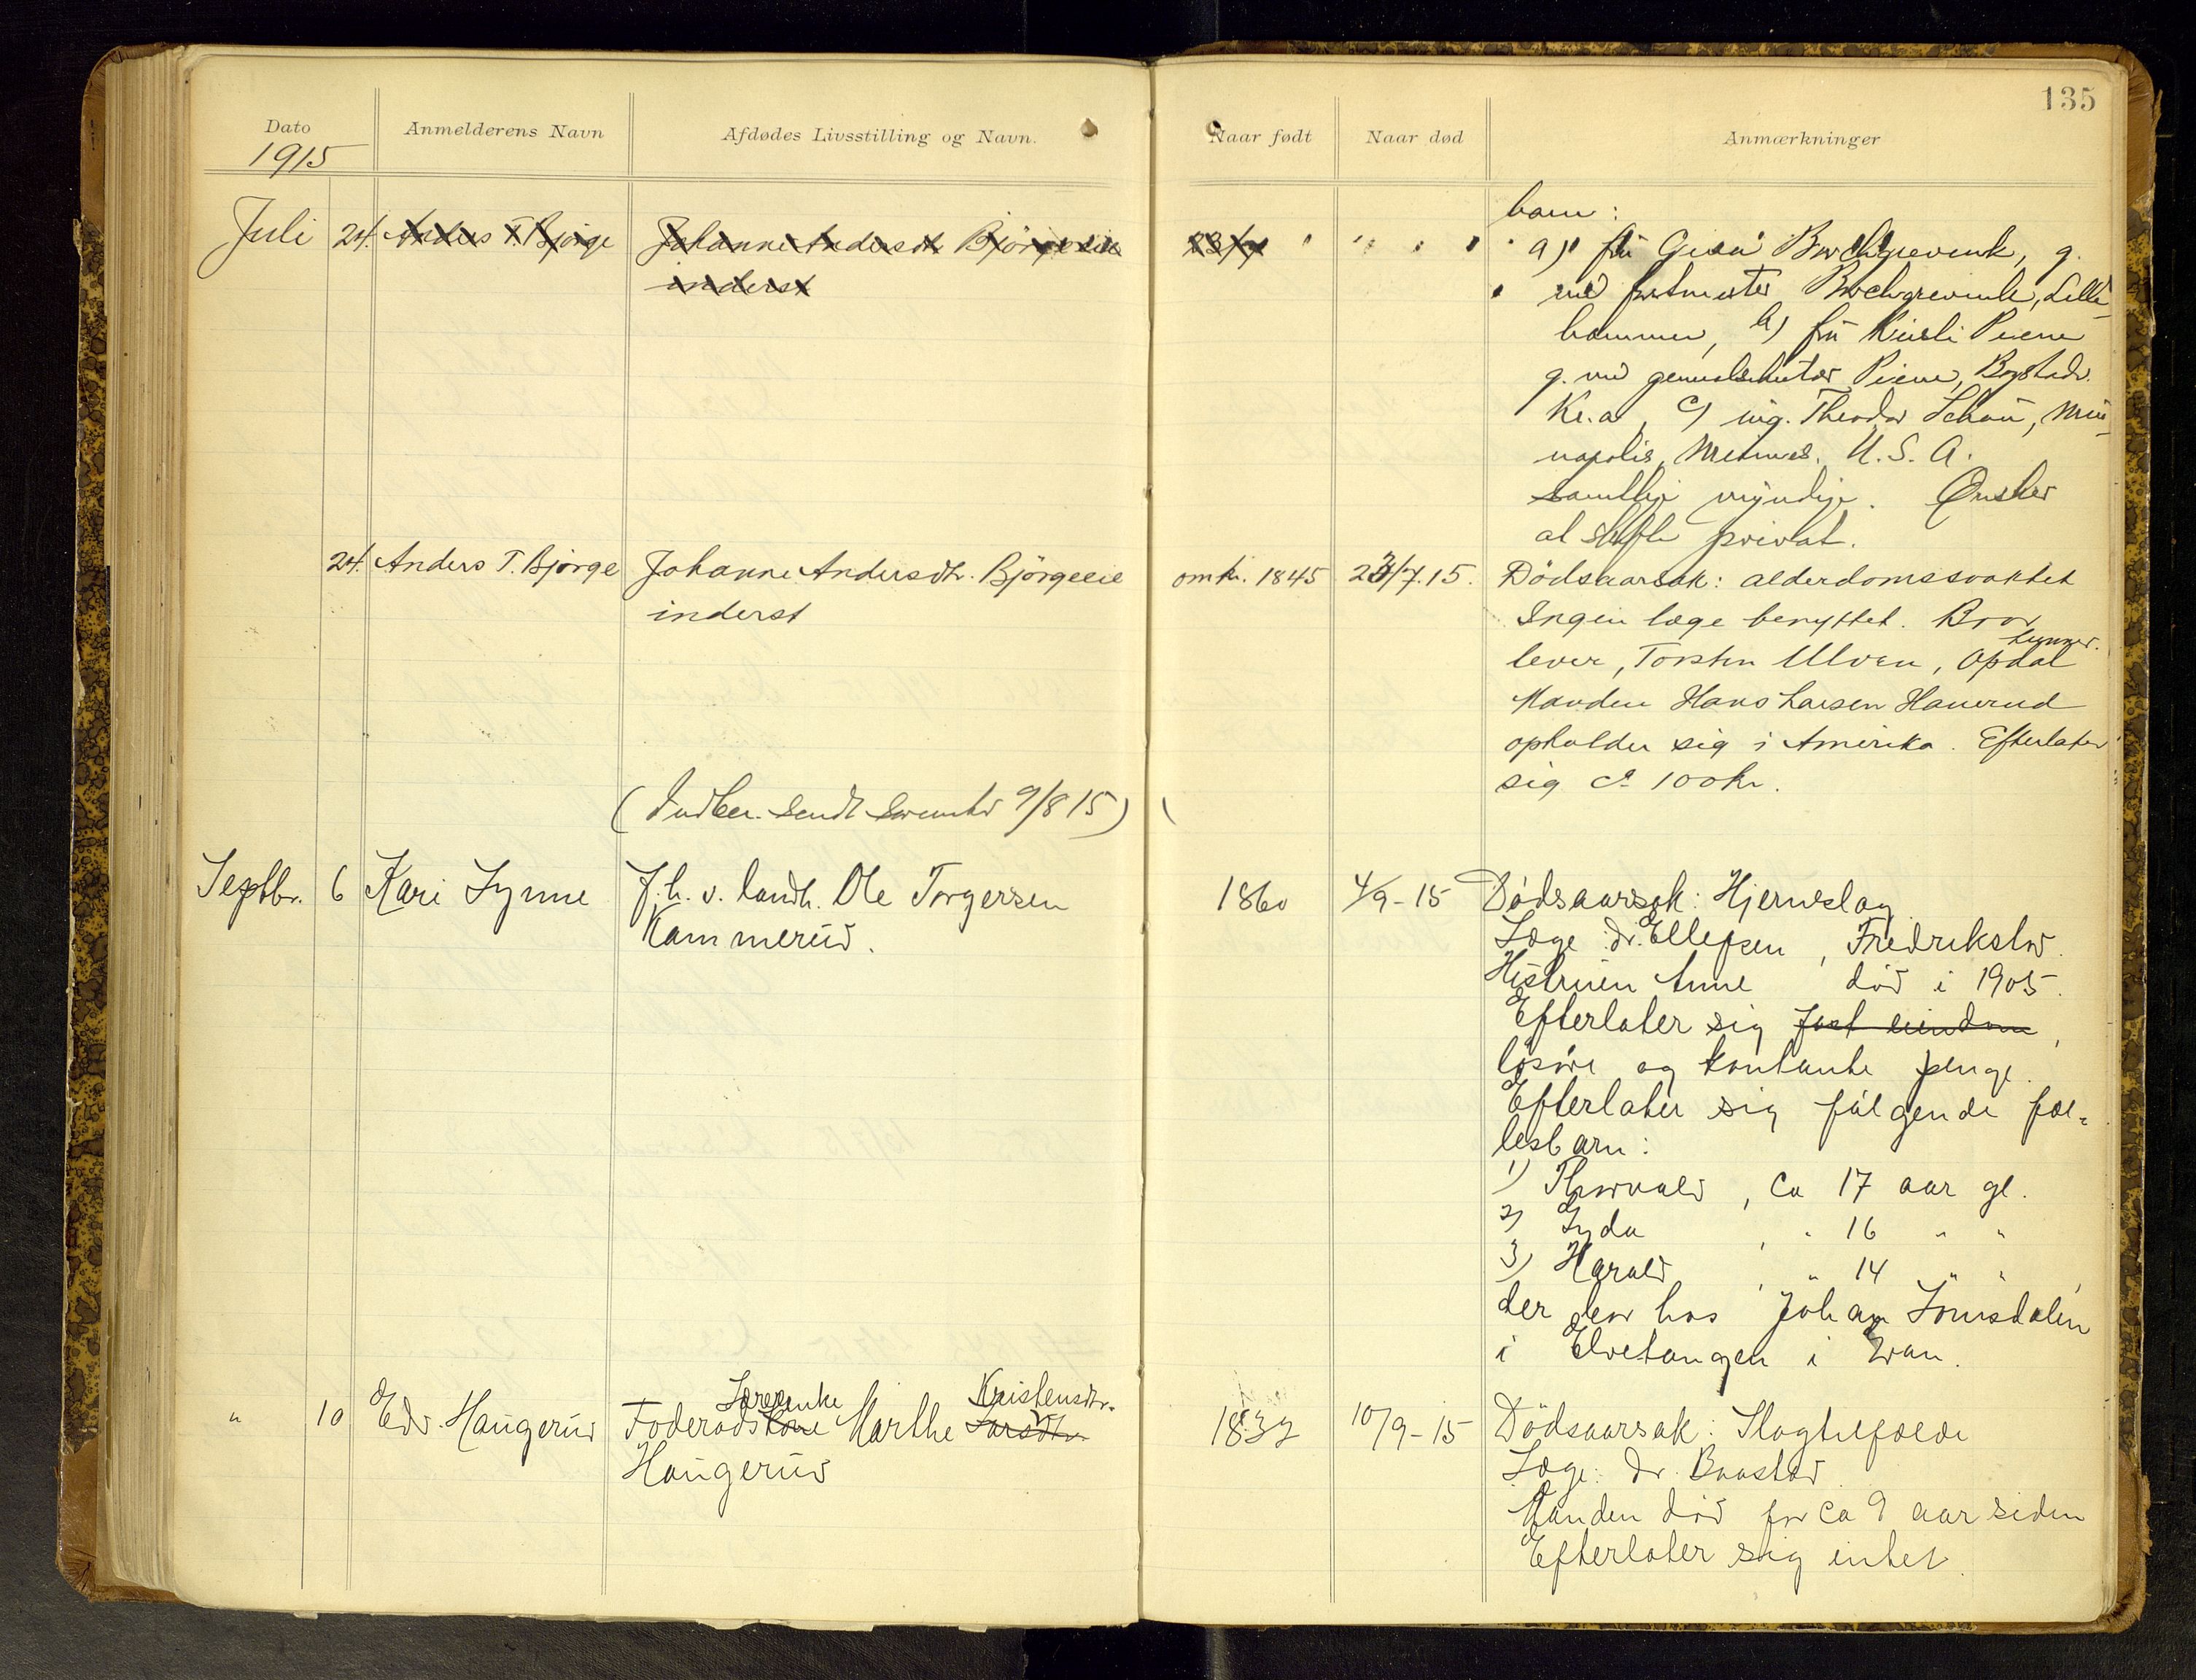 135
Dato
Anmelderens Navn
Afdødes Livsstilling og Navn.
Naar født
Naar død
Anmærkninger
1915
barn:
Juli 24. Anders T. Bjørge Johanne Andersdt. Bjørgeeie 23/7 " " " " a) fru Borchgrevink, g.
inderst
med postmester Borchgrevink, Lille-
hammer, b) fru Piene
g. med Piene, Bogstadv.
Kr.a, c) ing. Theodor Schou, Min-
napolis, U.S.A.
samtlige myndige. Ønsker
at skifte privat.
24. Anders T. Bjørge Johanne Andersdtr. Bjørgeeie omkr. 1845 23/7.15. Dödsaarsak: alderdomssvakhet
inderst
Ingen læge benyttet. Bror
Lunner.
lever, Torsten Ulven, Opdal
Manden Hans Larsen Hauerud
opholder sig i Amerika. Efterlater
sig ca 100 kr.
(Indber. sendt 9/8 15)
Septbr. 6 Kari Lynne F.h.v. landh. Ole Torgersen 1860 4/9-15 Dödsaarsak: Hjerneslag
Kammerud.
Læge: dr. Ellefsen, Fredrikstad.
Hustruen Anne død i 1905.
Efterlater sig fast eiendom,
løsøre og kontante penge.
Efterlater sig følgende fæl-
lesbarn:
1) Thorvald, ca 17 aar gl.
2) Lyda, " 16 " "
3) Harald, " 14 " ",
der er hos Johan Lömsdalen
i Elvetangen i Gran.
" 10 Edv. Haugerud Foderadskone Marthe Larsdtr. 1832 10/9-15 Dödsaarsak: Slagtilfælde
enke Kristensdtr.
Haugerud
Læge: Dr. Baastad.
Manden død for ca 9 aar siden
Efterlater sig intet.